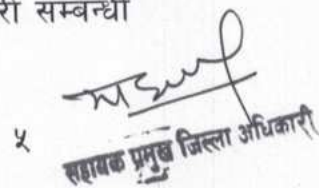 री सम्बन्धी
५
सहायक प्रमुख जिल्ला अधिकारी